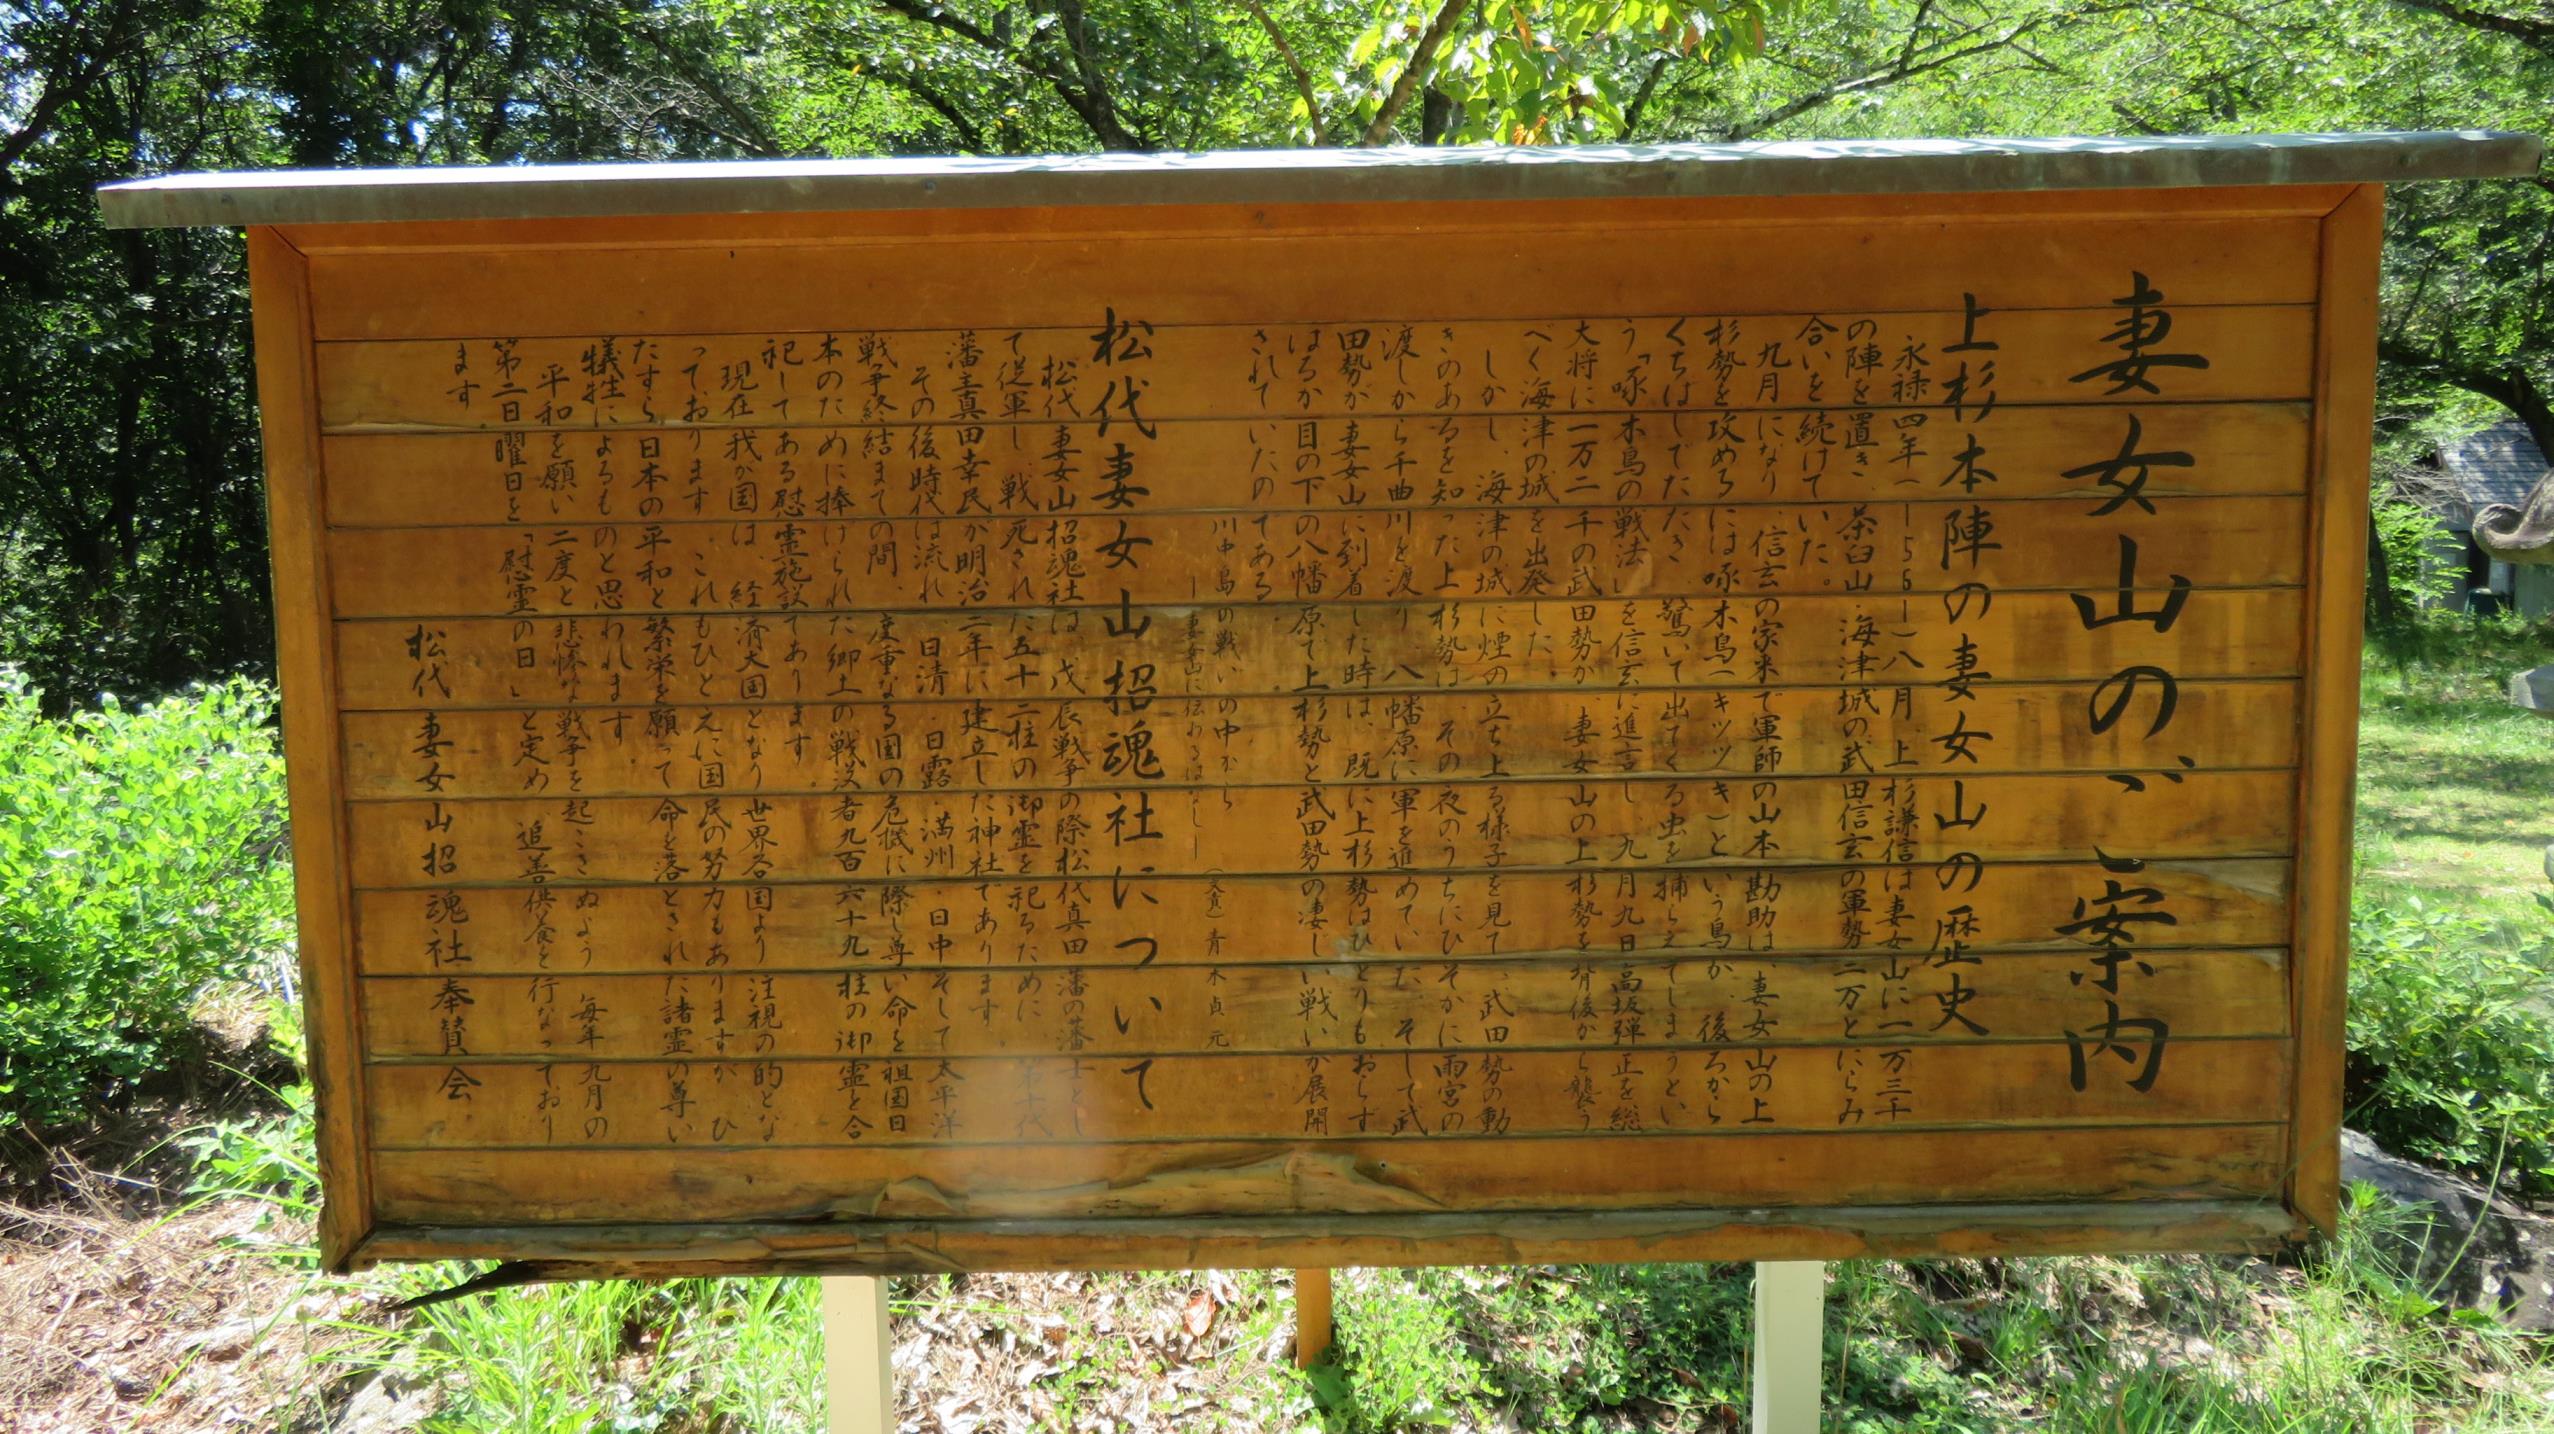 妻女山のご案内
上杉本陣の妻女山の歴史
永禄四年(一五六一)八月、上杉謙信は妻女山に一万三千
の陣を置き、茶臼山・海津城の武田信玄の軍勢二万とにらみ
合いを続けていた。
九月になり、信玄の家来で軍師の山本勘助は、妻女山の上
杉勢を攻めるには啄木鳥(キツツキ)という鳥が、後ろから
くちばしでたたき、驚いて出てくる虫を捕らえてしまうとい
う「啄木鳥の戦法」を信玄に進言し、九月九日高坂弾正を総
大将に一万二千の武田勢が、妻女山の上杉勢を背後から襲う
べく海津の城を出発した。
しかし、海津の城に煙の立ち上る様子を見て、武田勢の動
きのあるを知った上杉勢は、その夜のうちにひそかに雨宮の
渡しから千曲川を渡り、八幡原に軍を進めていた。そして武
田勢が妻女山に到着した時は、既に上杉勢はひとりもおらず
はるか目の下の八幡原で上杉勢と武田勢の凄じい戦いが展開
されていたのである。
川中島の戦いの中から
―妻女山に伝わるはなし― (文責)青木貞元
松代妻女山招魂社について
松代妻女山招魂社は、戊辰戦争の際松代真田藩の藩士とし
て従軍し、戦死された五十二柱の御霊を祀るために、第十代
藩主真田幸民が明治二年に建立した神社であります。
その後時代は流れ、日清・日露・満州・日中そして太平洋
戦争終結までの間、度重なる国の危機に際し尊い命を祖国日
本のために捧げられた郷土の戦没者九百六十九柱の御霊を合
祀してある慰霊施設であります。
現在我が国は、経済大国となり世界各国より注視の的とな
っております。これもひとえに国民の努力もありますが、ひ
たすら日本の平和と繁栄を願って命を落とされた諸霊の尊い
犠牲によるものと思われます。
平和を願い二度と悲惨な戦争を起こさぬよう、毎年九月の
第二日曜日を「慰霊の日」と定め、追善供養を行なっており
ます。
松代妻女山招魂社奉賛会